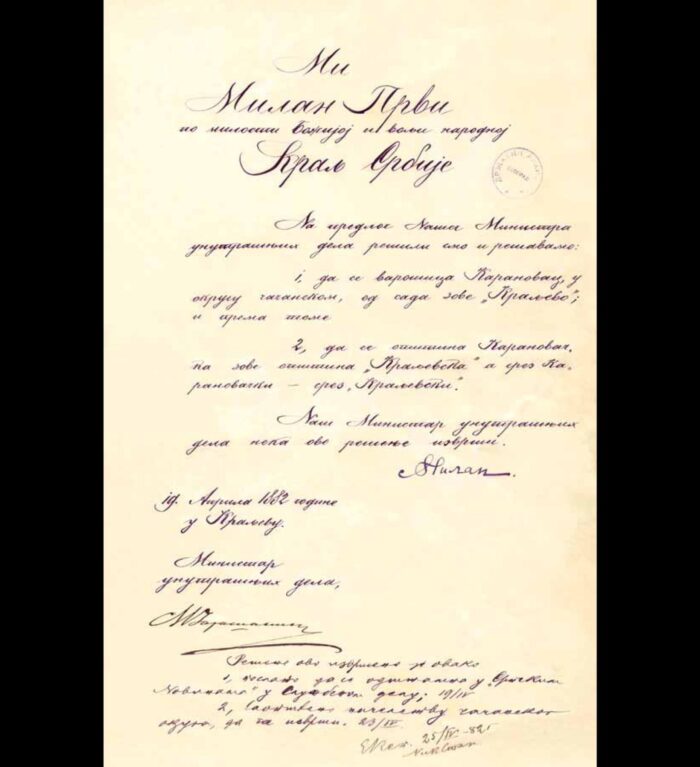 Ми
Милан Први
по милости Божијој и вољи народној
Краљ Србије
На предлог Нашег Министра
унутрашњих дела решили смо и решавамо:
1, да се варошица Карановац, у
округу чачанском, од сада зове „Краљево“;
и према томе
2, да се општина Карановач.
ка зове општина „Краљевска“ а срез Ка-
рановачки — срез „Краљевски“.
Наш Министар унутрашњих
дела нека ово решење изврши.
Милан
19. Априла 1882 године
у Краљеву.
Министар
унутрашњих дела,
Решење ово извршено је овако
1, послато да се одштампа у „Српским
Новинама“ у Службеном делу; 19/IV
2, Саопштено начелству чачанског
округа, да га изврши. 23/IV
25/IV -82